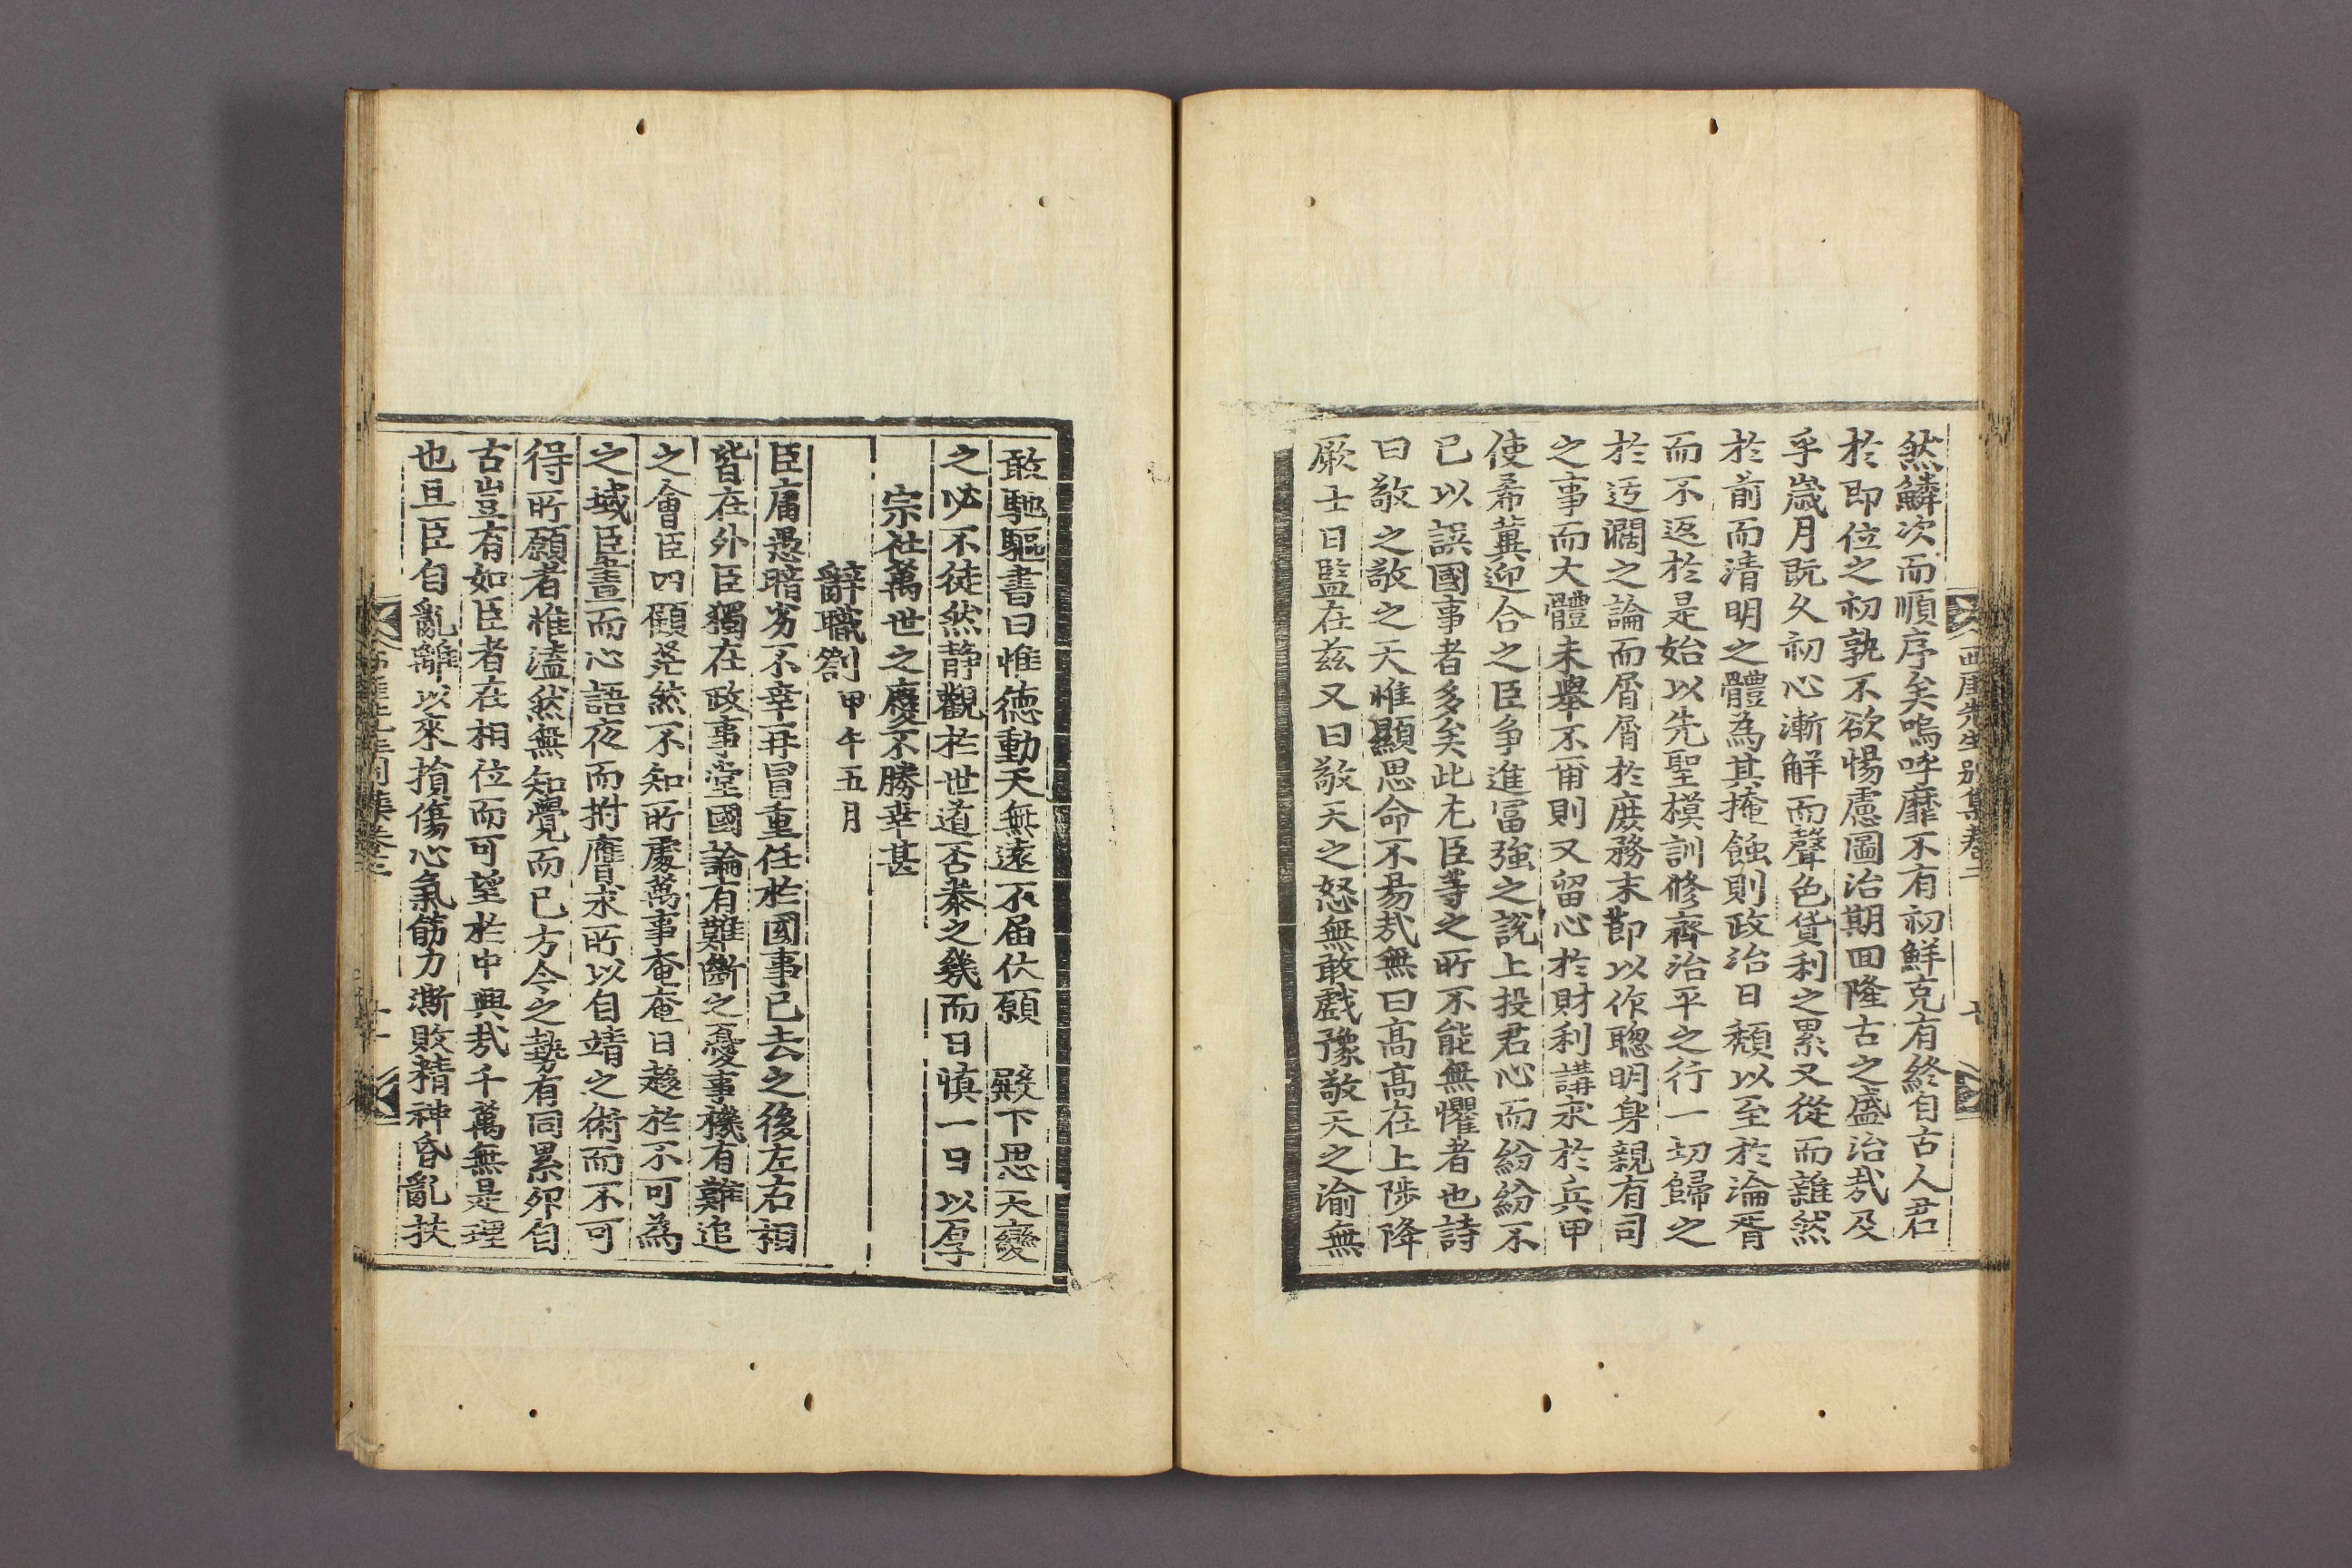 然鱗次而順序矣嗚呼靡不有初鮮克有終自古人君
於即位之初孰不欲惕慮圖治期回隆古之盛治㢤及
乎歲月旣久初心漸解而聲色貨利之累又從而雜然
於前而清明之體為其掩蝕則政治日頹以至於淪胥
而不返於是始以先聖模訓修齊治平之行一切歸之
於迃濶之論而屑屑於庶務末節以作聦明身親有司
之事而大體未擧不甭則又留心於財利講求於兵甲
使希冀迎合之臣爭進富強之說上投君心而紛紛不
已以誤國事者多矣此尤臣等之所不能無懼者也詩
曰敬之敬之天惟顯思命不易㢤無曰高高在上陟降
厥士日監在玆又曰敬天之怒無敢戲豫敬天之渝無
西厓先生别集卷之二
敢馳驅書曰惟德動天無遠不届伏願 殿下思天變
之必不徒然静觀於世道否泰之幾而日慎一日以厚
宗社萬世之慶不勝幸甚
辭職劄 甲午五月
臣庸愚暗劣不幸再冒重任於國事已去之後左右相
皆在外臣獨在政事堂國論有難斷之憂事機有難追
之會臣四顧茫然不知所處萬事奄奄日趍於不可為
之域臣晝而心語夜而拊膺求所以自靖之術而不可
得所願者惟溘然無知覺而已方今之勢有同累卵自
古豈有如臣者在相位而可望於中興㢤千萬無是理
也且臣自亂離以來損傷心氣筋力澌敗精神昏亂扶